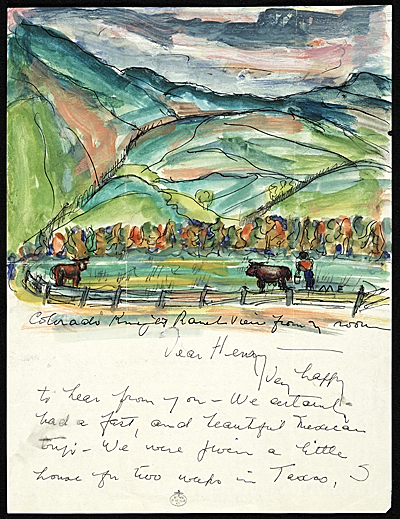 Colorado Ranch View from my room
Dear Henry —
Very happy
to hear from you — We certainly
had a fast, and beautiful Mexican
trip — We were given a little
house for two weeks in Texas,
ME